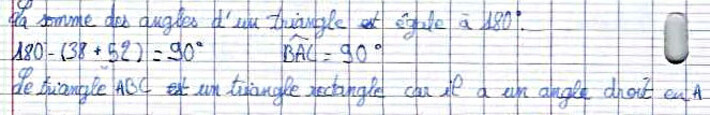 La somme des angles d'un triangle est égale à 180°.
180 - (38 + 52) = 90°    BAC = 90°
Le triangle ABC est un triangle rectangle car il a un angle droit en A